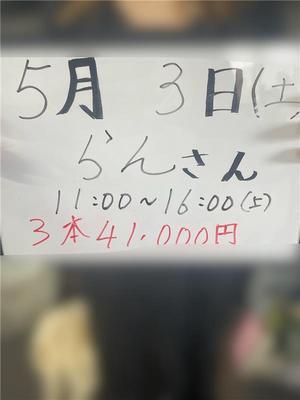 5月 3日(土
らんさん
11:00~16:00(5)
3本41,000円